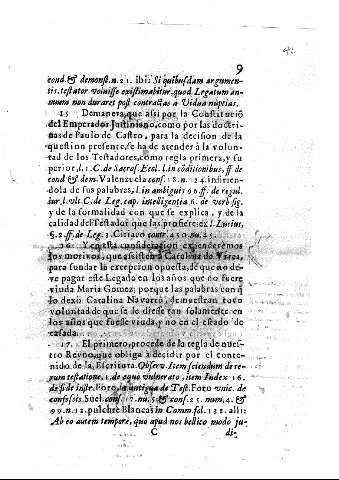 9
cond. & demonst. n. 21. ibi: Si quibusdam argumen-
tis, testator voluisse existimabitur, quod Legatum an-
nuum non duraret post contractas a Vidua nuptias.
15 Demanera, que assi por la Constitució
del Emperador Justiniano, como por las doctri-
nas de Paulo de Castro, para la decision de la
question presente, se ha de atender à la volun-
tad de los Testadores, como regla primera, y su
perior, l. 1. C. de Sacros. Eccl. l. in coditionibus, ff. de
cond & dem. Valenzuela cons. 18. n. 124. infirien-
dola de sus palabras, l. in ambiguis 96. ff. de regul.
iur, l. vlt. C. de Leg. cap. intelligentia 6. de verb. sig.
y de la formalidad con que se explica, y de la
calidad del Testador que las profiere, ex l. Lucius,
§. 2. ff. de Leg. 3. Ciriaco contr. 410. nu. 45.
16 Y en esta consideracion expenderemos
los motivos, que assisten à Catalina de Varea,
para fundar la excepcion opuesta, de que no de-
ve pagar este Legado en los años que no fuere
viuda Maria Gomez; porque las palabras con q̃
lo dexò Catalina Navarro, demuestran tuvo
voluntad de que se le diesse tan solamente en
los años que fuesse viuda, y no en el estado de
casada.
17. El primero, procede de la regla de nues-
tro Reyno, que obliga a decidir por el conte-
nido de la Escritura. Observ. Item sciendum de re-
rum testatione, 1. de equo vulnerato, item Index 16.
de fide instr. Foro la antigua de Test. Foro vnic. de
confessis Suel. cons. 17. nu. 5. & cons. 25. num. 4. &
99. n. 12. pulchre Blancas in Comm. fol. 132. alli:
Ab eo autem tempore, quo apud nos bellico modo ju-
C di-